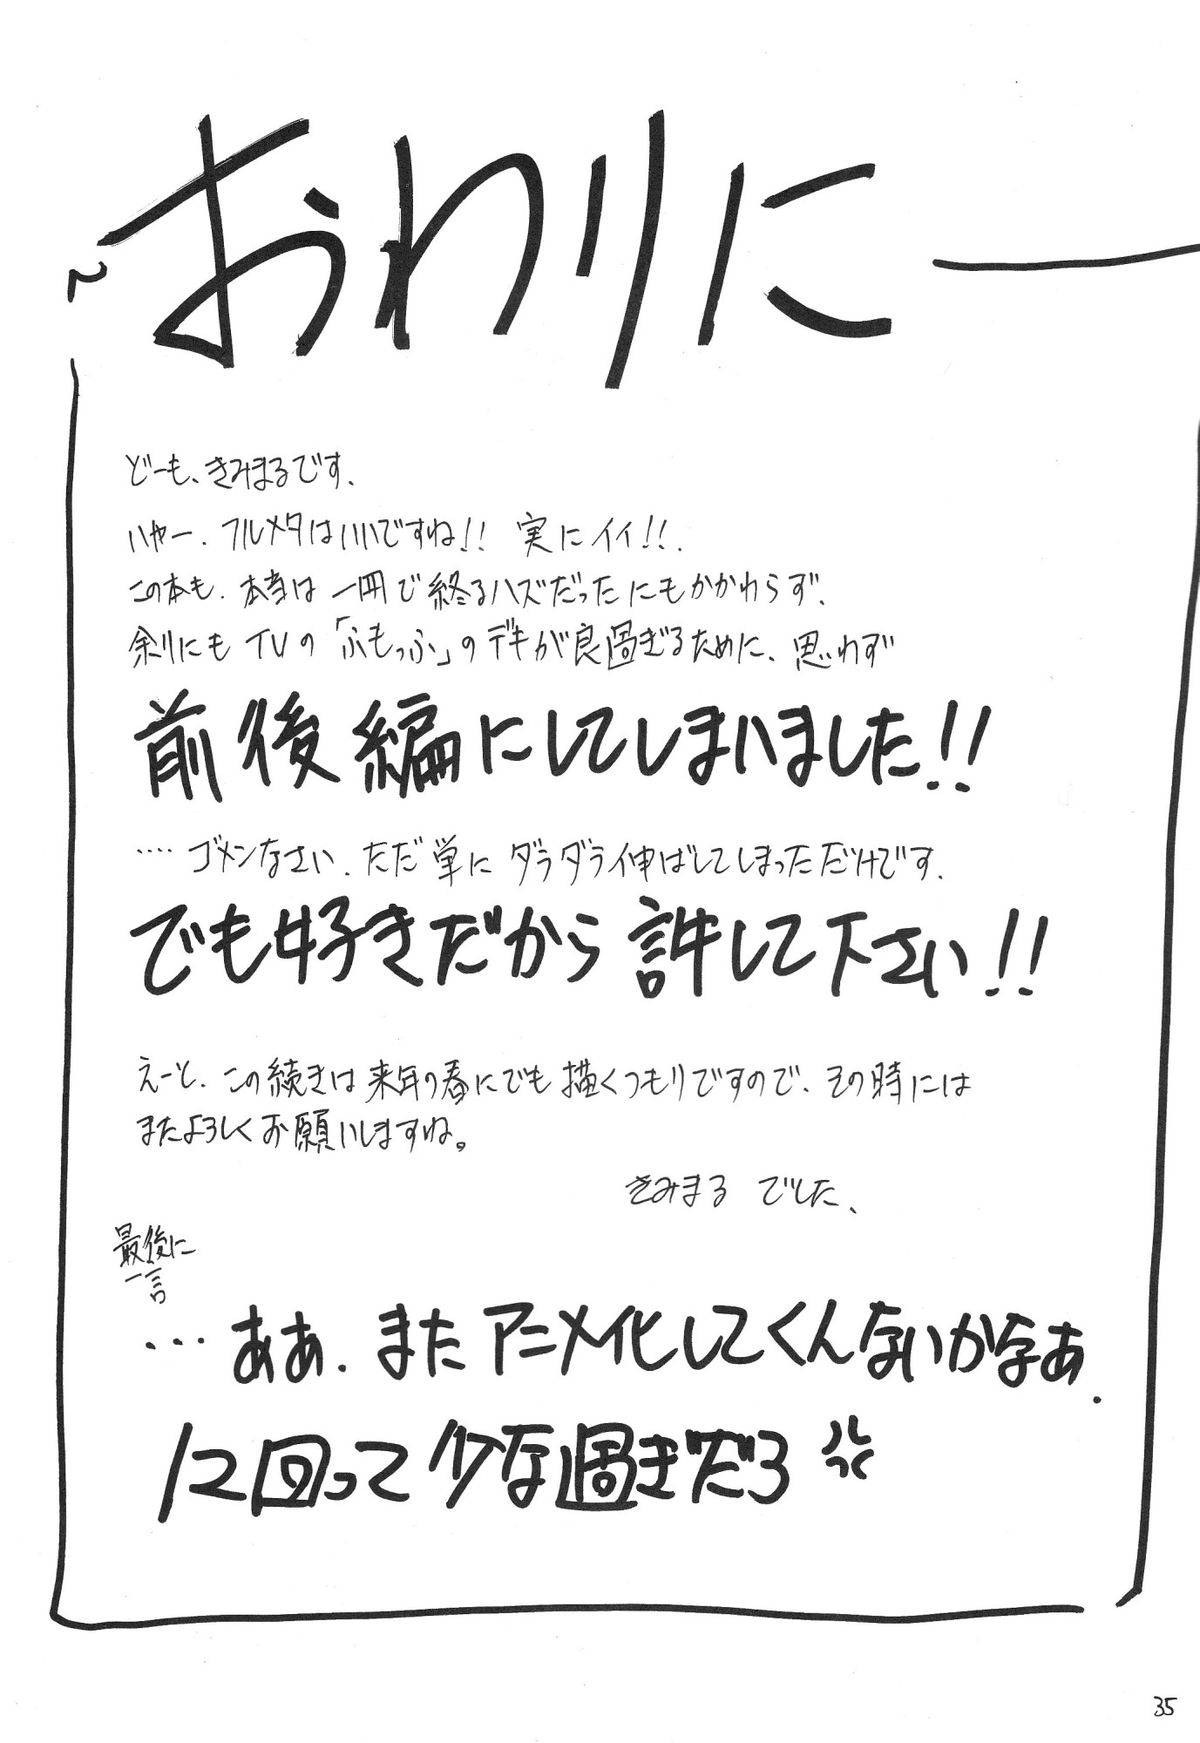 おわりに
どーも、きみまるです。
ハヤー、フルメタはいいですね!! 実にイイ!!
この本も、本当は一冊で終るハズだったにもかかわらず、
余りにもTVの「ふもっふ」のデキが良過ぎるために、思わず
前後編にしてしまいました!!
‥‥ゴメンなさい、ただ単にダラダラ伸ばしてしまっただけです。
でも好きだから許して下さい!!
えーと、この続きは来年の春にでも描くつもりですので、その時には
またよろしくお願いしますね。
きみまるでした、
最後に
一言
…ああ、またアニメ化してくんないかなあ.
12回って少な過ぎだろ
35